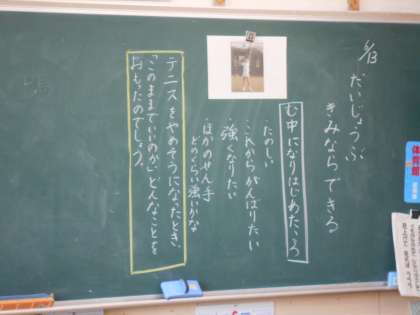 6/13
だいじょうぶ
きみならできる
む中になりはじめたころ
たのしい
・これからがんばりたい
・強くなりたい
・ほかのせん手
どのくらい強いかな
テニスをやめそうになったとき、
「このままでいいのか」どんなことを
おもったのでしょう。
体育館